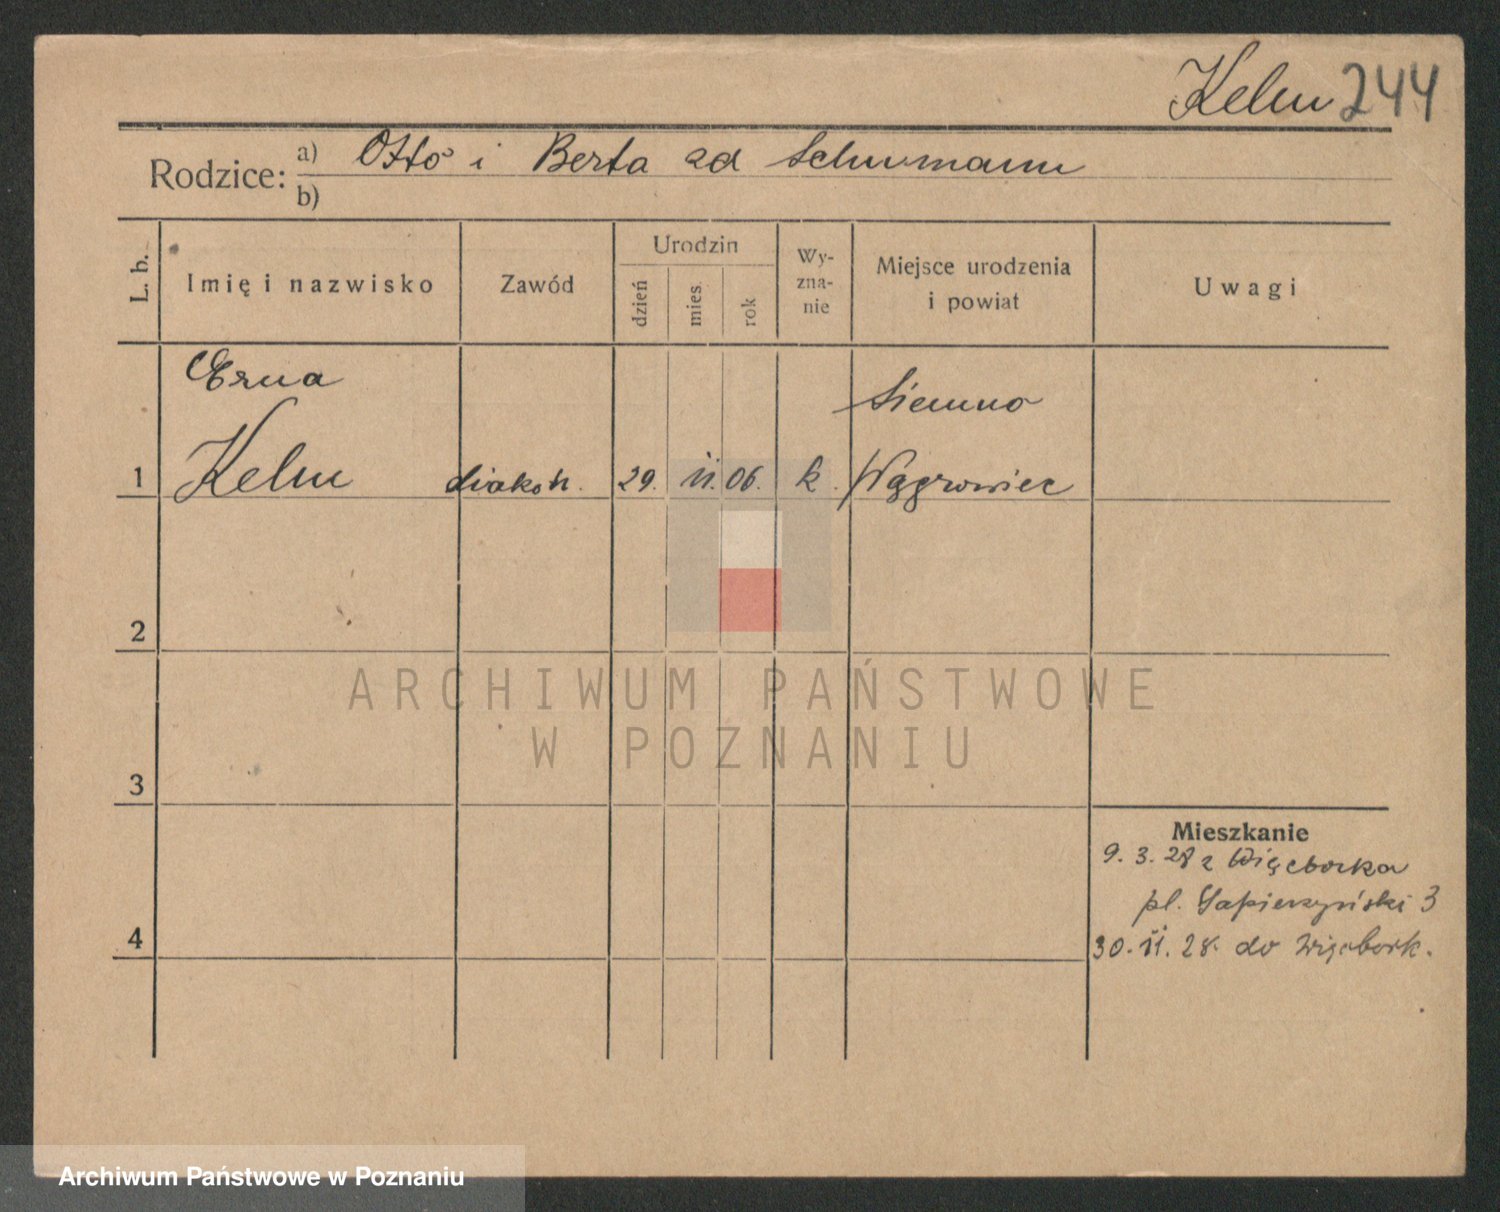 Kelm 244
Rodzice: a) Otto i Berta zd Schumann
b)
L. b.
Imię i nazwisko
Zawód
Urodzin
dzień
mies.
rok
Wy-
zna-
nie
Miejsce urodzenia
i powiat
Uwagi
Erna
Siemno
1 Kelm diakon. 29. 11. 06. k. Wągrowiec
2
3
4
Mieszkanie
9. 3. 28 z Więcborka
pl. Sapieżyński 3
30. 11. 28. do Więcbork.
ARCHIWUM PAŃSTWOWE
W POZNANIU
Archiwum Państwowe w Poznaniu